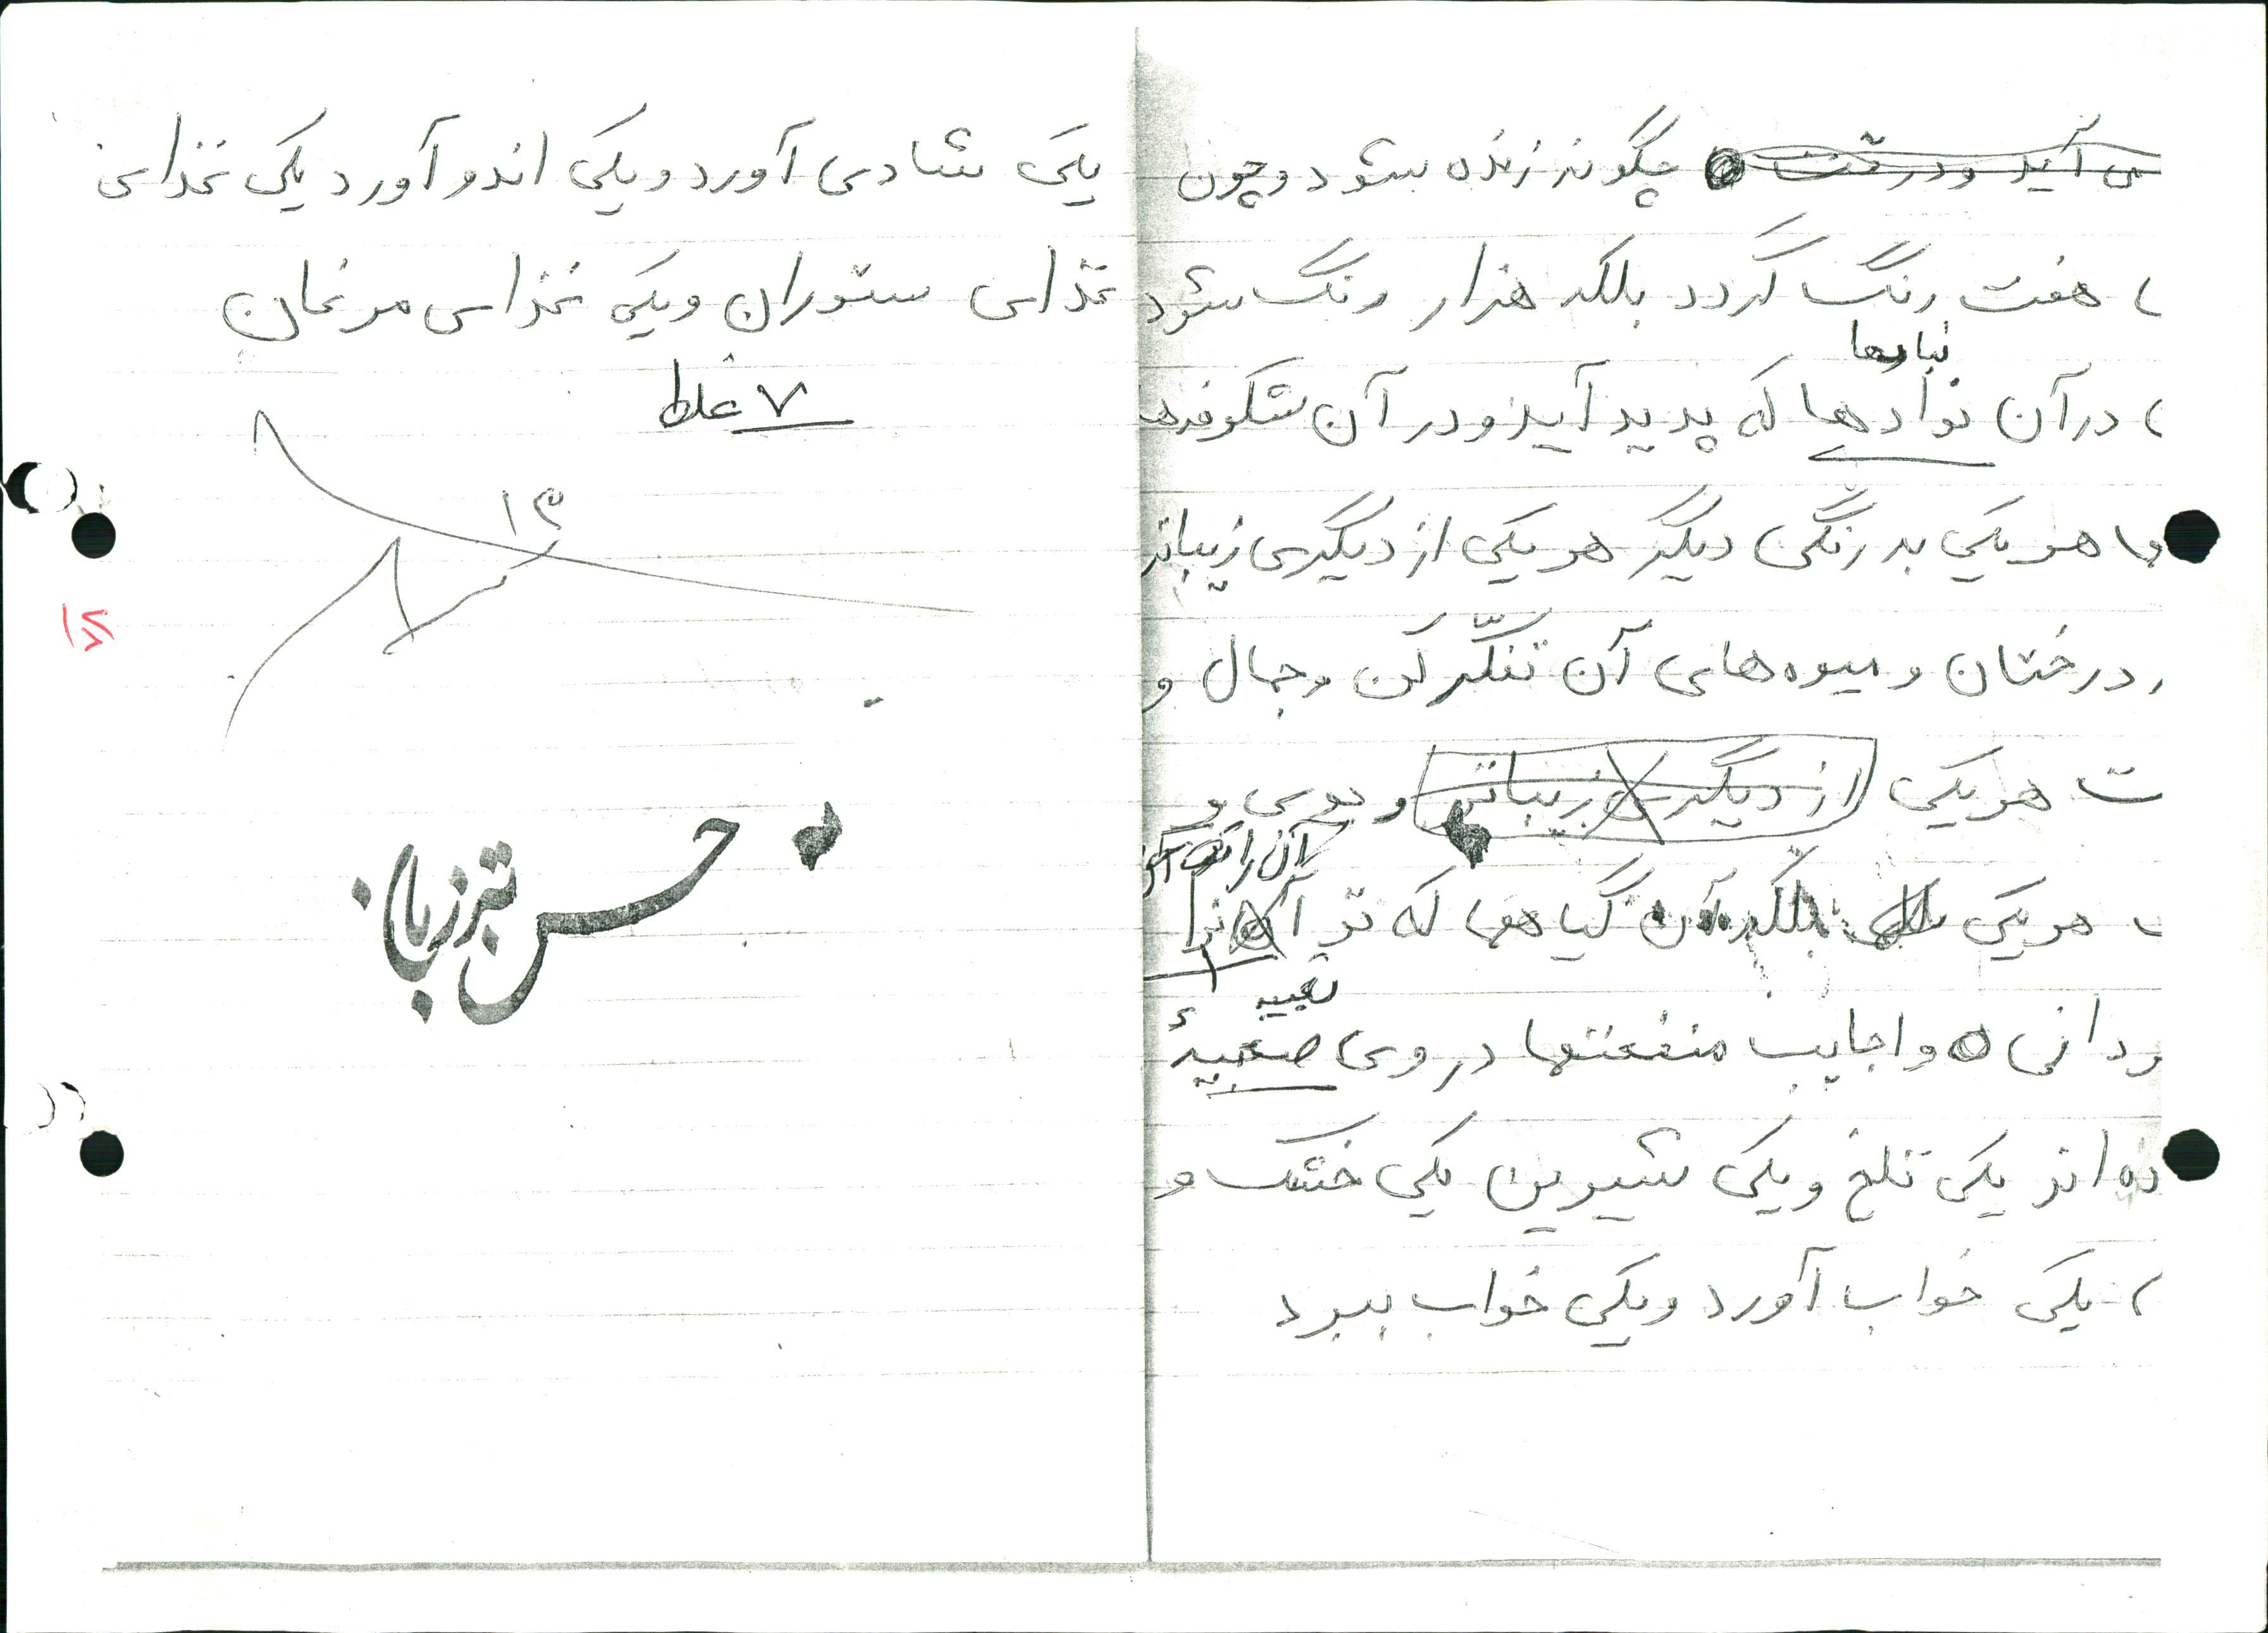 می آید و درختان چگونه زنده بشود و چون
هفت رنگ گردد بلکه هزار رنگ بشود
نباتها
در آن نوادها که پدید آید و در آن شکوفه‌ها
هر یکی به رنگی دیگر هر یکی از دیگری زیباتر
درختان و میوه‌های آن تفکّر کن و جمال و
ت هر یکی از دیگری زیباتر و بوی و
هر یکی بلکه آن گیاهها که تو آنرا
تعبیه
دانی و اجایب منفعتها در وی صعبیهٔ
ده اند یکی تلخ و یکی شیرین یکی خشک و
یکی خواب آورد و یکی خواب ببرد
یکی شادی آورد و یکی اندو آورد یکی غذای
غذای ستوران و یکی غذای مرغان
۷ غلط
۱۳
۱۵
حسن تبرزبان